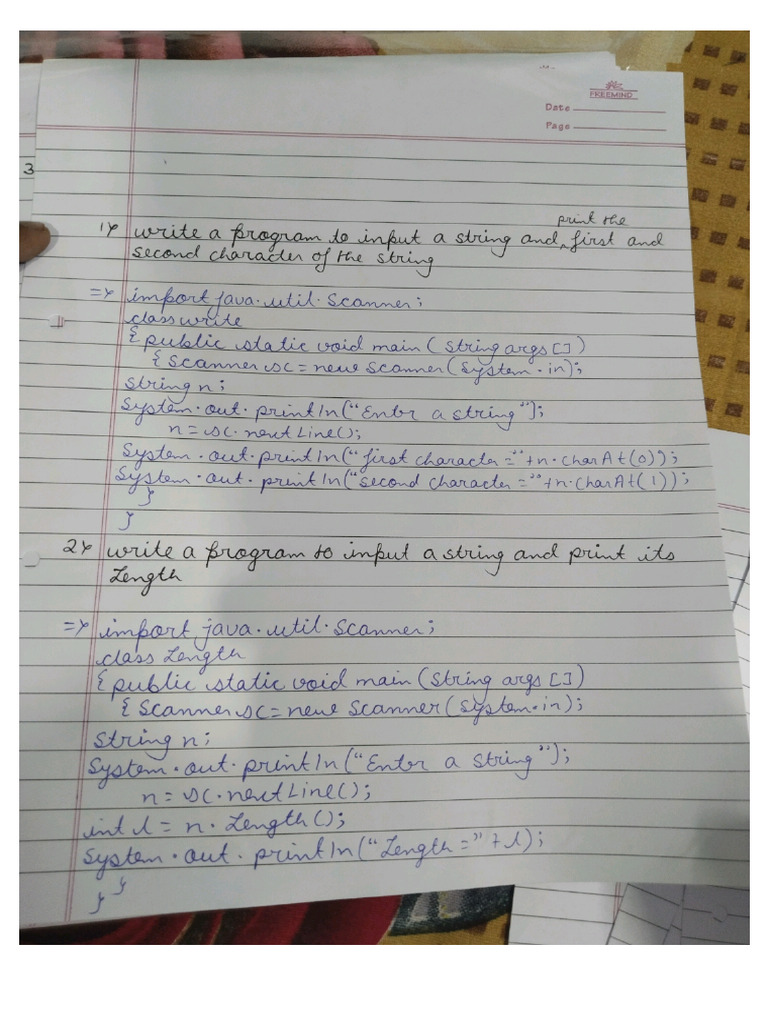 FREEMIND
Date
Page
3
1) write a program to input a string and print the first and
second character of the string
=> import java.util.Scanner;
class write
{ public static void main (String args [])
{ Scanner sc = new Scanner (System.in);
String n;
System.out.println("Enter a string");
n = sc.nextLine();
System.out.println("first character ="+n.charAt(0));
System.out.println("second character ="+n.charAt(1));
}
}
2) write a program to input a string and print its
Length
=> import java.util.Scanner;
class Length
{ public static void main (String args [])
{ Scanner sc = new Scanner (System.in);
String n;
System.out.println("Enter a String");
n = sc.nextLine();
int l = n.Length();
System.out.println("Length =" + l);
}
}